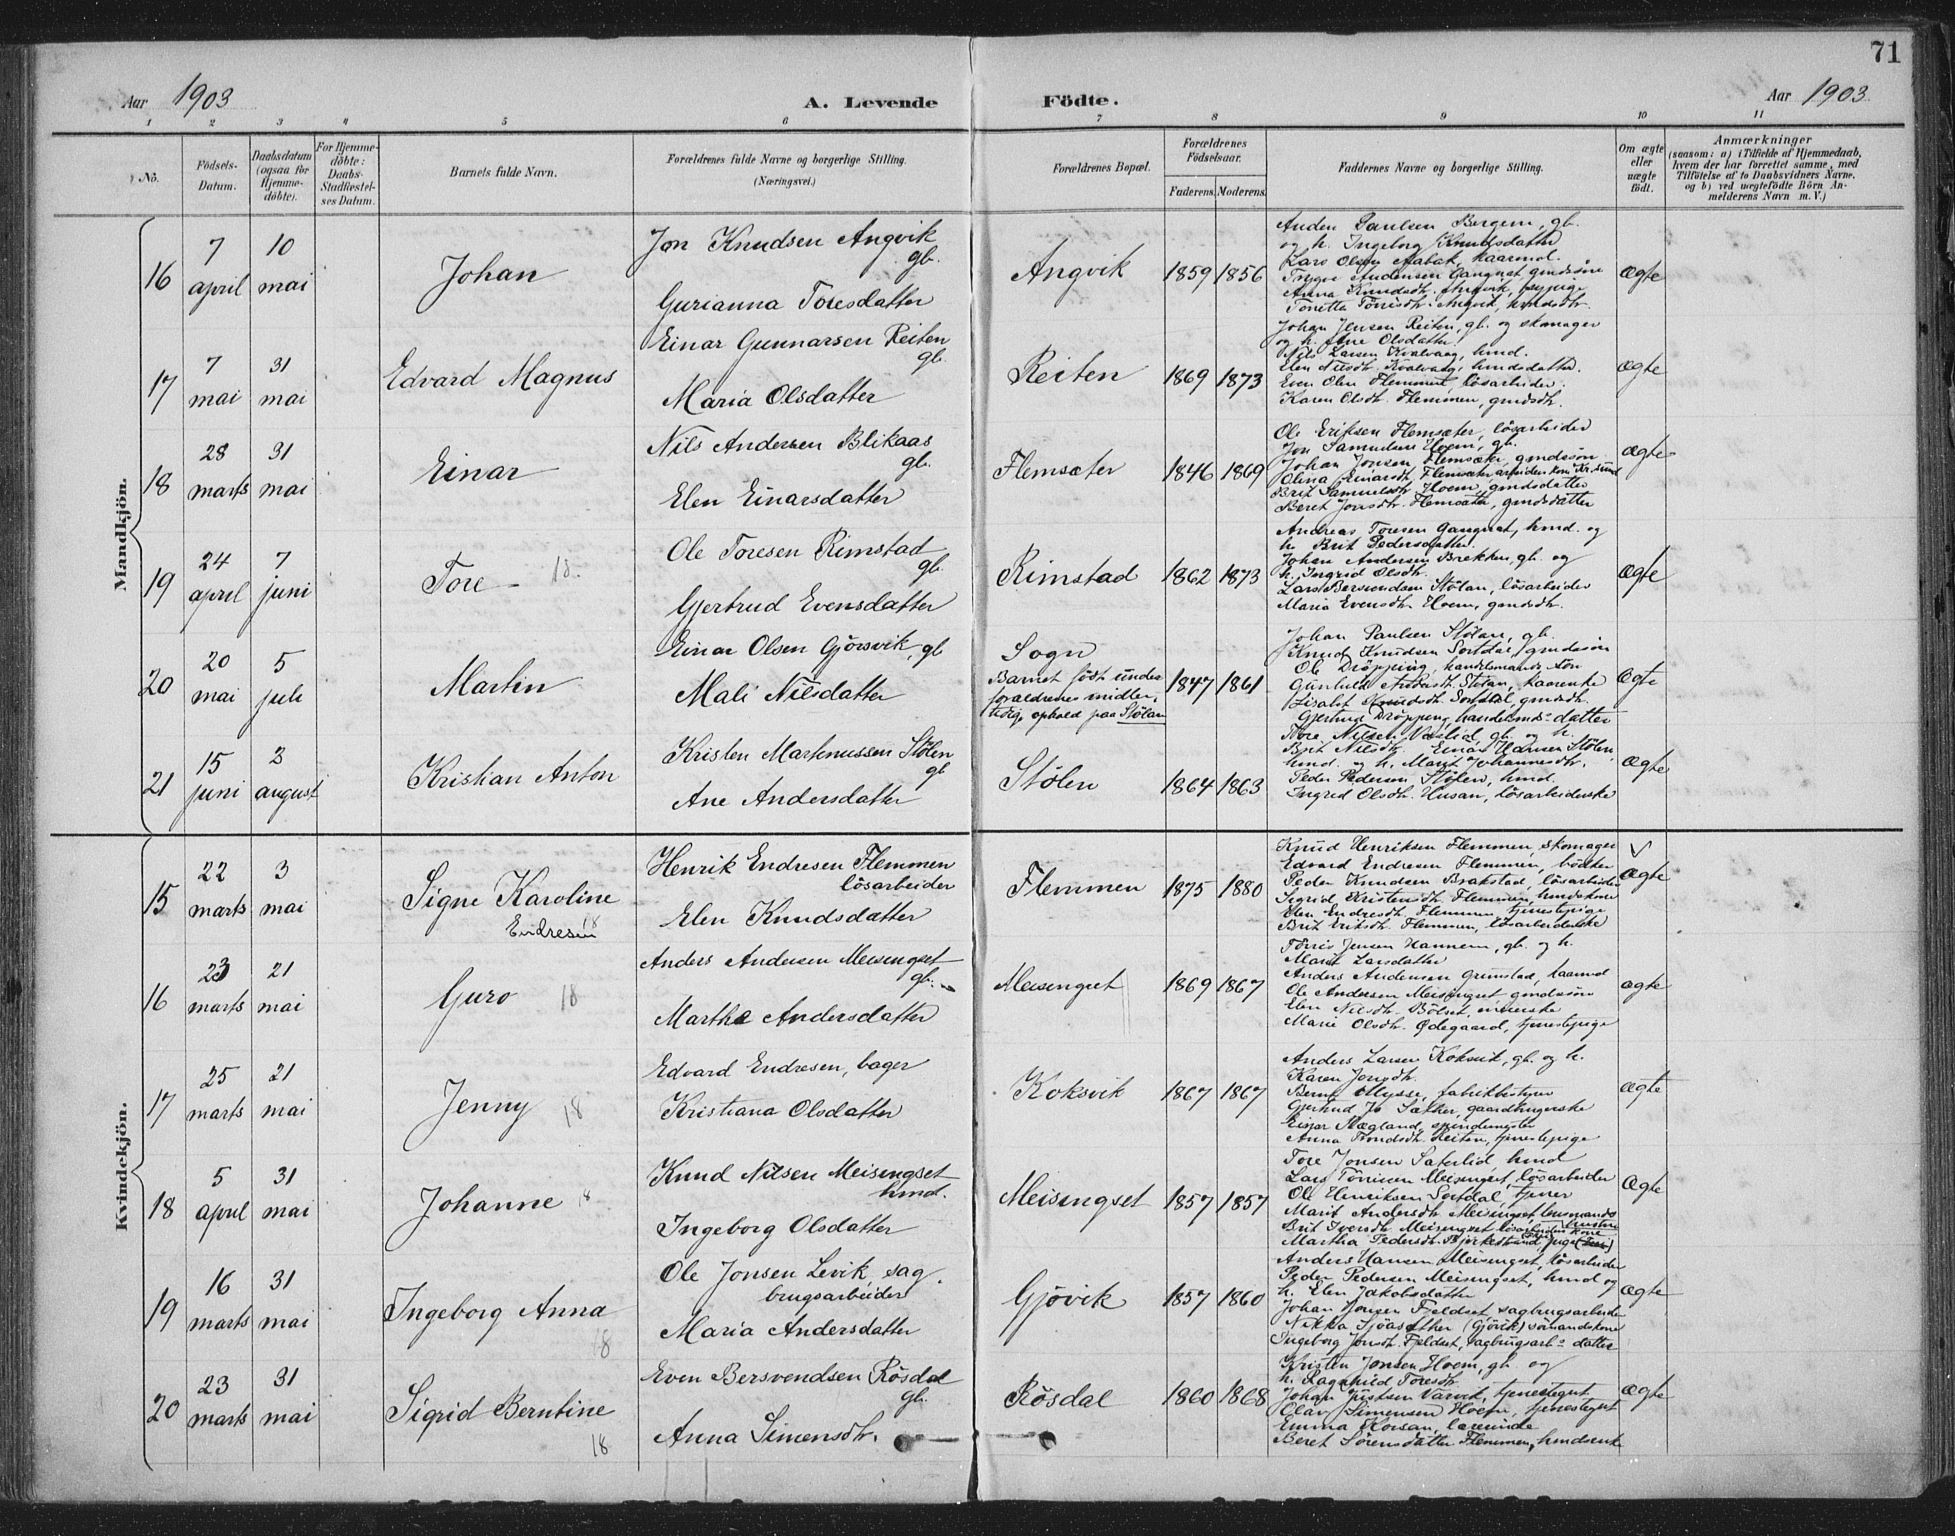 71
Aar 1903
A. Levende Födte.
Aar 1903
1 2 3 4 5 6 7 8 9 10 11
No.
Födsels-Datum.
Daabsdatum (ogsaa for Hjemme-döbte).
For Hjemme-döbte: Daabs-Stadfæstel-ses Datum.
Barnets fulde Navn.
Forældrenes fulde Navne og borgerlige Stilling. (Næringsvei.)
Forældrenes Bopæl.
Forældrenes Födselsaar.
Faderens. Moderens.
Faddernes Navne og borgerlige Stilling.
Om ægte eller uægte födt.
Anmærkninger
(saasom: a) i Tilfælde af Hjemmedaab, hvem der har forrettet samme, med Tilföielse af to Daabsvidners Navne, og b) ved uægtefödte Börn An-melderens Navn m. V.)
Mandkjön.
16
7 april
10 mai
Johan
Jon Knudsen Angvik gb.
Gurianna Toresdatter
Angvik
1859 1856
og h. Ingeborg Knudsdatter
ægte
17
7 mai
31 mai
Edvard Magnus
Einar Gunnarsen Reiten gb.
Maria Olsdatter
Reiten
1869 1873
Johan Jensen Reiten, gb. og skomager
og h. Ane Olsdatter
Nils Larsen Kvalvaag, hmd.
Elen Nilsdtr. Kvalvaag, hmdsdatter
Karen Olsdtr. Flemmen, gmdsdtr.
ægte
18
28 marts
31 mai
Einar
Nils Andersen Blikaas gb.
Elen Einarsdatter
Flemsæter
1846 1869
Ole Eriksen Flemsæter, lösarbeider
Jon Samuelsen Hoem, gb.
Johan Jonsen Flemsæter, gmdssön
Brit Samuelsdtr. Hoem, gmdsdatter
Beret Jonsdtr. Flemsæter, gmdsdatter
ægte
19
24 april
7 juni
Tore 18
Ole Toresen Rimstad gb.
Gjertrud Evensdatter
Rimstad
1862 1873
Andreas Toresen Gangnat, hmd. og
h. Brit Pedersdatter.
Johan Andersen Brekken, gb. og
h. Ingrid Olsdtr.
Lars Bersvendsen Stölan, lösarbeider
Maria Evensdtr. Hoem, gmdsdtr.
ægte
20
20 mai
5 juli
Martin
Einar Olsen Gjörsvik, gb
Mali Nilsdatter
Sogn
Barnet födt under
forældrenes midler-
tidig ophold paa Stölan
1847 1861
Johan Paulsen Stölan, gb.
Knud Knudsen Sortdal, gmdssön
Ole Dröpping, handelsmands sön
Gjertrud Dröpping, handelsmds- datter
ægte
21
15 juni
2 august
Kristian Anton
Kristen Martinussen Stölen gb
Ane Andersdatter
Stölen
1864 1863
Tore Nilsen Vaslid gb. og h.
Brit Nilsdtr. Einar Hansen Stölen,
hmd. og h. Marit Johannesdtr.
Peder Pedersen Stölen, hmd.
Ingrid Olsdtr. Husan, lösarbeiderske
ægte
Kvindekjön.
15
22 marts
3 mai
Signe Karoline
Endresen 18
Henrik Endresen Flemmen
lösarbeider
Elen Knudsdatter
Flemmen
1875 1880
Knud Henriksen Flemmen, skomager
Edvard Endresen Flemmen, bödker
Peder Knudsen Brakstad, lösarbeider
Sigrid Kristensdtr. Flemmen, hmdskone
Elen Endresdtr. Flemmen, tjenestepige
Brit Eriksdtr. Flemmen, lösarbeiderske
ægte
16
23 marts
21 mai
Guro 18
Anders Andersen Meisingset gb.
Martha Andersdatter
Meisingset
1869 1867
Törris Jensen Hannem, gb. og h.
Marit Larsdatter
Anders Andersen Grimstad, kaarmd
Ole Andersen Meisingset gmdssön
Elen Nilsdtr. Bölset,
Marie Olsdtr. Ødegaard, tjenestepige
ægte
17
25 marts
21 mai
Jenny 18
Edvard Endresen, bager
Kristiana Olsdatter
Koksvik
1867 1867
Anders Larsen Koksvik, gb. og h.
Karen Jonsdtr.
Gjertrud Jo Sæther, gaardbrugerske
Einar Hægland, spindemester
Anna Trondsdtr. Reiten, tjenestepige
ægte
18
5 april
31 mai
Johanne 18
Knud Nilsen Meisingset
hmd.
Ingeborg Olsdatter
Meisingset
1857 1857
Tore Jonsen Saterlid, hmd
Lars Törrisen Meisingset, lösarbeider
Ole Henriksen Sortdal, tjener
Marit Andersdtr. Meisingset lensmands
Brit Iversdtr. Meisingset
Martha Pedersdtr. Bjerkestrand, pige
ægte
19
16 marts
31 mai
Ingeborg Anna
18
Ole Jonsen Levik, sag-
brugsarbeider
Maria Andersdatter
Gjövik
1857 1860
Anders Hansen Meisingset, lösarbeider
Peder Pedersen Meisingset, hmd og
h. Elen Jakobsdatter
Johan Jonsen Fjeldset, sagbrugsarbeider
Ingeborg Jonsdtr. Fjeldset, sagbrugsarb- datter
ægte
20
23 marts
31 mai
Sigrid Berntine
18
Even Bersvendsen Rösdal gb.
Anna Simensdtr.
Rösdal
1860 1868
Kristen Jonsen Hoem, gb. og
h. Ragnhild Toresdtr.
Johan Justsen Varvik, tjenestegut
Olav Simensen Hoem, tjenestegut
Emma Korsan, lærerinde
Beret Sörensdatter Flemmen, hmdsenke
ægte